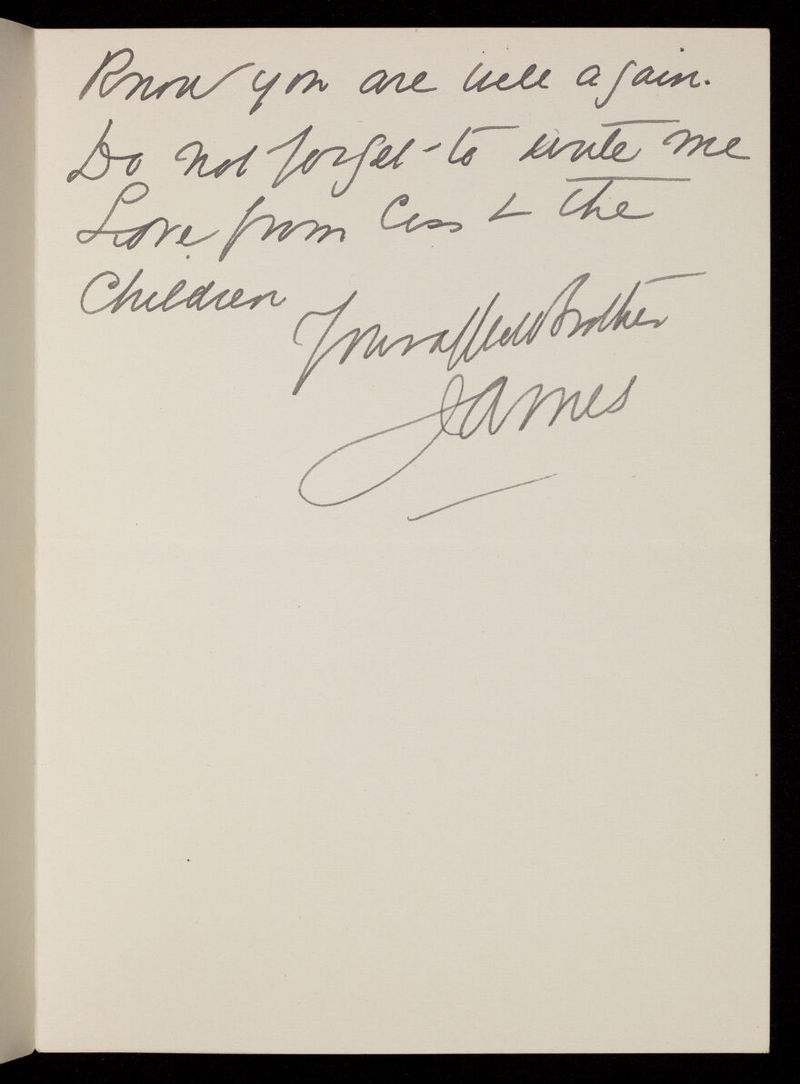 Know you are well again.
Do not forget - to write me
Love from Ciss & the
Children
Your affect Brother
James